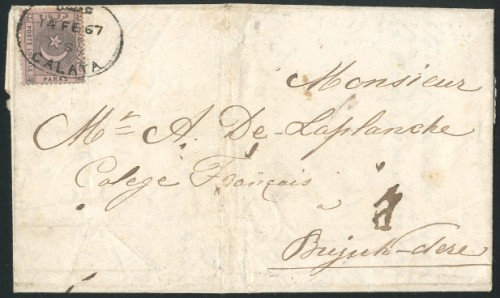 14 FE 67
S
GALATA
PARAS
Monsieur
Mr. A. De-Laplanche
Colege Français
à
Bujuk-dere